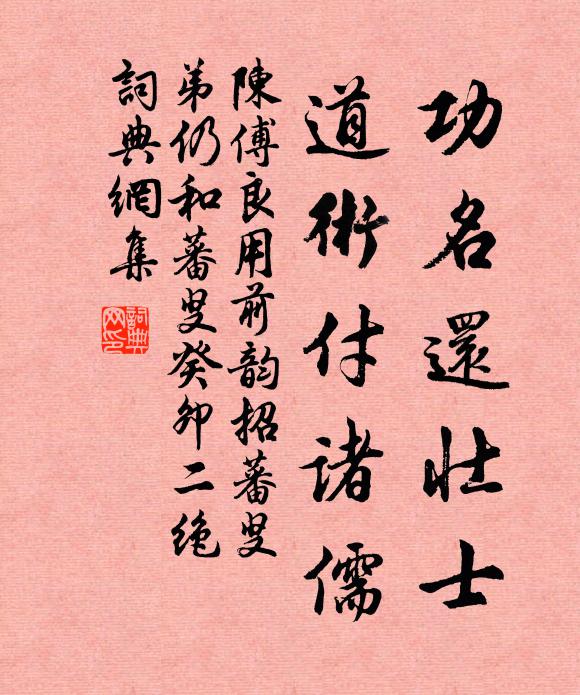 功名還壯士
道術付諸儒
陳傅良用前韵招蕃叟
弟仍和蕃叟癸卯二绝
詞典網集
詞典
网印